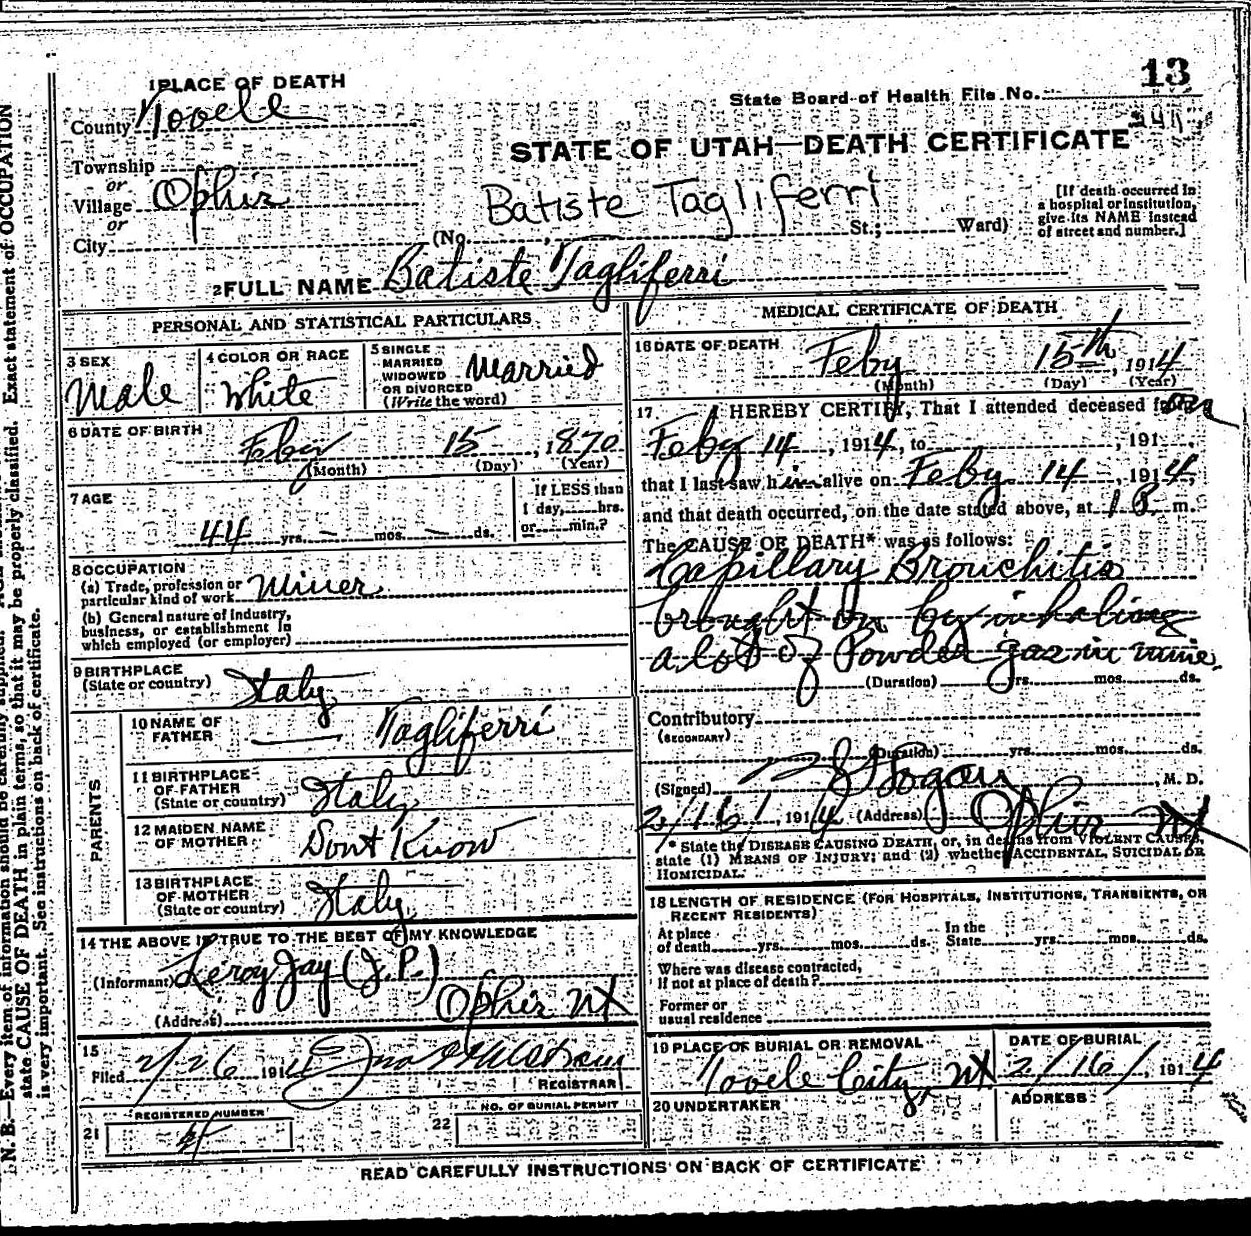 13
1 PLACE OF DEATH
State Board of Health File No.
County Tooele
STATE OF UTAH—DEATH CERTIFICATE
Township
or
Village Ophir
or
City
Batiste Tagliferri
(No. , St.; Ward)
[If death occurred in
a hospital or institution,
give its NAME instead
of street and number.]
2 FULL NAME Batiste Tagliferri
PERSONAL AND STATISTICAL PARTICULARS
3 SEX
Male
4 COLOR OR RACE
White
5 SINGLE
MARRIED
WIDOWED
OR DIVORCED
(Write the word)
Married
6 DATE OF BIRTH
15, 1870
(Month) (Day) (Year)
7 AGE
44 yrs. — mos. — ds.
If LESS than
1 day, hrs.
or min.?
8 OCCUPATION
(a) Trade, profession or
particular kind of work Miner
(b) General nature of industry,
business, or establishment in
which employed (or employer)
9 BIRTHPLACE
(State or country) Italy
PARENTS
10 NAME OF
FATHER — Tagliferri
11 BIRTHPLACE
OF FATHER
(State or country) Italy
12 MAIDEN NAME
OF MOTHER Dont Know
13 BIRTHPLACE
OF MOTHER
(State or country) Italy
14 THE ABOVE IS TRUE TO THE BEST OF MY KNOWLEDGE
(Informant) Leroy Jay (J.P.)
(Address) Ophir Ut
15
Filed 2/26 1914
REGISTRAR
REGISTERED NUMBER
21
NO. OF BURIAL PERMIT
22
MEDICAL CERTIFICATE OF DEATH
16 DATE OF DEATH
Feby 15th, 1914
(Month) (Day) (Year)
17. I HEREBY CERTIFY, That I attended deceased from
Feby 14, 1914, to , 191 ,
that I last saw him alive on Feby 14, 1914,
and that death occurred, on the date stated above, at m.
The CAUSE OF DEATH* was as follows:
Capillary Bronchitis
brought on by inhaling
a lot of Powder gas in mine.
(Duration) yrs. mos. ds.
Contributory
(SECONDARY)
(Duration) yrs. mos. ds.
(Signed) Hogan, M. D.
2/16/, 1914 (Address) Ophir Ut
* State the DISEASE CAUSING DEATH, or, in deaths from VIOLENT CAUSES,
state (1) MEANS OF INJURY; and (2) whether ACCIDENTAL, SUICIDAL OR
HOMICIDAL.
18 LENGTH OF RESIDENCE (FOR HOSPITALS, INSTITUTIONS, TRANSIENTS, OR
RECENT RESIDENTS)
At place
of death yrs. mos. ds.
In the
State yrs. mos. ds.
Where was disease contracted,
if not at place of death?
Former or
usual residence
19 PLACE OF BURIAL OR REMOVAL
Tooele City, Ut
DATE OF BURIAL
2/16/, 1914
20 UNDERTAKER
ADDRESS
READ CAREFULLY INSTRUCTIONS ON BACK OF CERTIFICATE
N. B.—Every item of information should be carefully supplied.
state CAUSE OF DEATH in plain terms, so that it may be properly classified. Exact statement of OCCUPATION
is very important. See instructions on back of certificate.